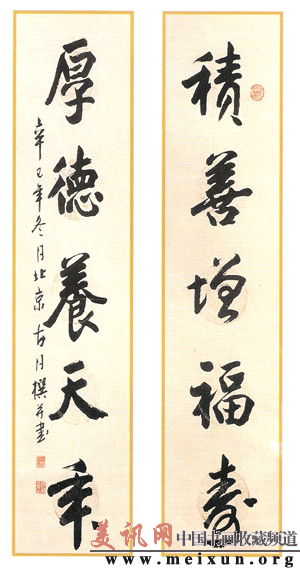 積善增福壽
厚德養天年
辛巳年冬月北京古月撰并書
美讯网 中国书画收藏频道
www.meixun.org